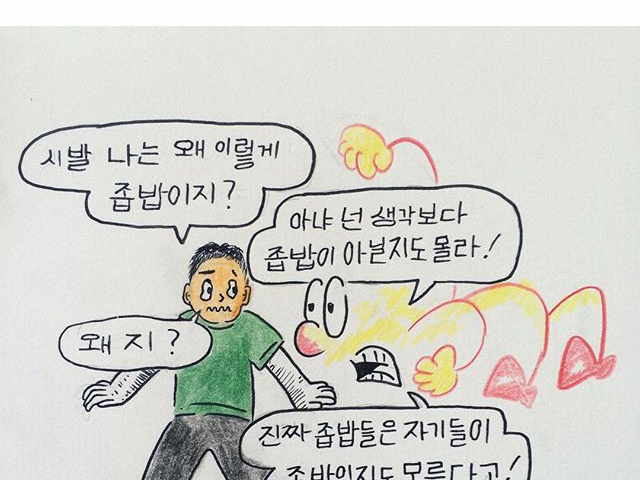 시발 나는 왜 이렇게
좁밥이지?
아냐 넌 생각보다
좁밥이 아닐지도 몰라!
왜 지?
진짜 좁밥들은 자기들이
좁밥인지도 모른다고!